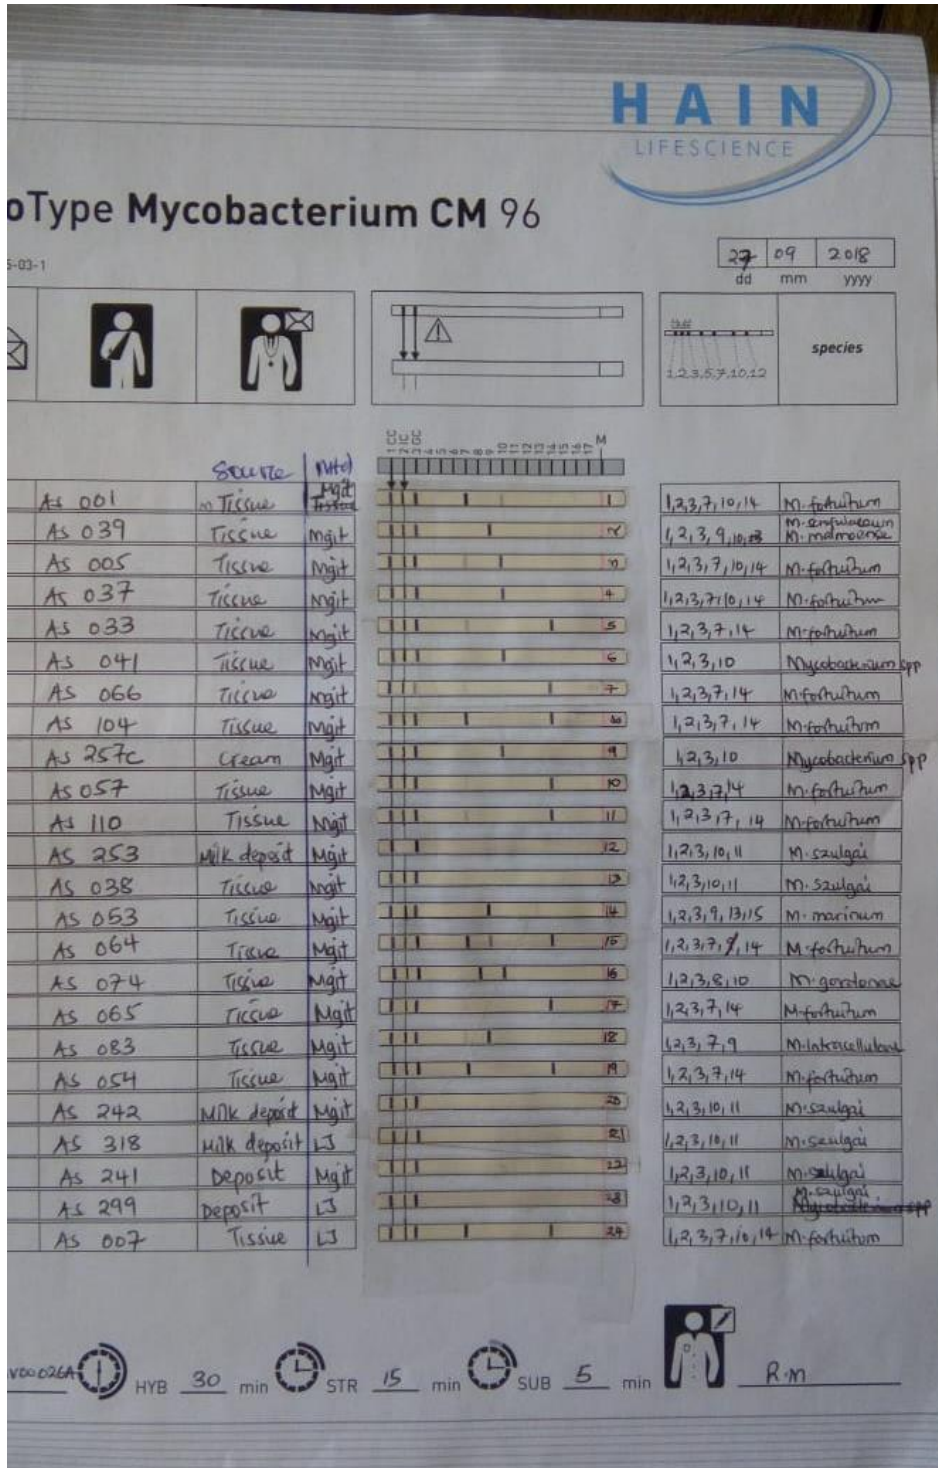 HAIN
LIFESCIENCE
oType Mycobacterium CM 96
5-03-1
27 09 2018
dd mm yyyy
species
1,2,3,5,7,10,12
1 CC
2 IC
3 GC
4 5 6 7 8 9 10 11 12 13 14 15 16 17 M
Source
AS 001 Tissue Mgit 1 1,2,3,7,10,14 M. fortuitum
AS 039 Tissue Mgit 1,2,3,9,10, M. malmoense
AS 005 Tissue Mgit 1,2,3,7,10,14 M. fortuitum
AS 037 Tissue Mgit 4 1,2,3,7,10,14 M. fortuitum
AS 033 Tissue Mgit 5 1,2,3,7,14 M. fortuitum
AS 041 Tissue Mgit 6 1,2,3,10 Mycobacterium spp
AS 066 Tissue Mgit 7 1,2,3,7,14 M. fortuitum
AS 104 Tissue Mgit 1,2,3,7,14 M. fortuitum
AS 257c Cream Mgit 9 1,2,3,10 Mycobacterium spp
AS 057 Tissue Mgit 10 1,2,3,7,14 M. fortuitum
AS 110 Tissue Mgit 11 1,2,3,7,14 M. fortuitum
AS 253 Milk deposit Mgit 12 1,2,3,10,11 M. szulgai
AS 038 Tissue Mgit 13 1,2,3,10,11 M. szulgai
AS 053 Tissue Mgit 14 1,2,3,9,13,15 M. marinum
AS 064 Tissue Mgit 15 1,2,3,7,9,14 M. fortuitum
AS 074 Tissue Mgit 16 1,2,3,8,10 M. gordonae
AS 065 Tissue Mgit 17 1,2,3,7,14 M. fortuitum
AS 083 Tissue Mgit 18 1,2,3,7,9 M. Intracellulare
AS 054 Tissue Mgit 19 1,2,3,7,14 M. fortuitum
AS 242 Milk deposit Mgit 20 1,2,3,10,11 M. szulgai
AS 318 Milk deposit LJ 21 1,2,3,10,11 M. szulgai
AS 241 Deposit Mgit 22 1,2,3,10,11 M. szulgai
AS 299 Deposit LJ 23 1,2,3,10,11 M. szulgai Mycobacterium spp
AS 007 Tissue LJ 24 1,2,3,7,10,14 M. fortuitum
V00026A HYB 30 min STR 15 min SUB 5 min R.M